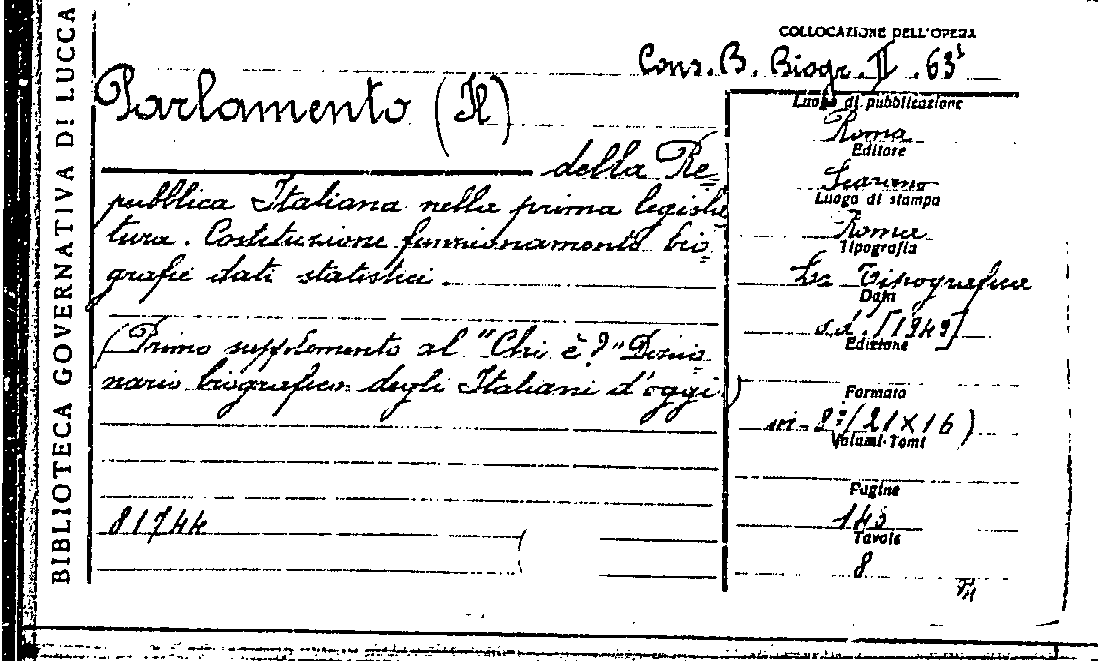 BIBLIOTECA GOVERNATIVA DI LUCCA
COLLOCAZIONE DELL'OPERA
Cons. B. Biogr. II. 63¹
Parlamento (Il)
della Re=
pubblica Italiana nella prima legisla
tura. Costituzione funzionamento bio=
grafie dati statistici.
(Primo supplemento al "Chi è?" Dizio
nario biografico degli Italiani d'oggi)
81744
Luogo di pubblicazione
Roma
Editore
Scarano
Luogo di stampa
Roma
Tipografia
La Tipografica
Data
s.d. [1949]
Edizione
Formato
in-8º (21×16)
Volumi-Tomi
Pagine
143
Tavole
8